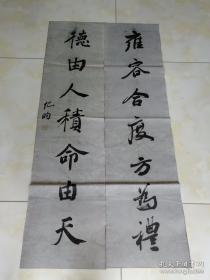 雍容合度方為禮
德由人積命由天
纪昀